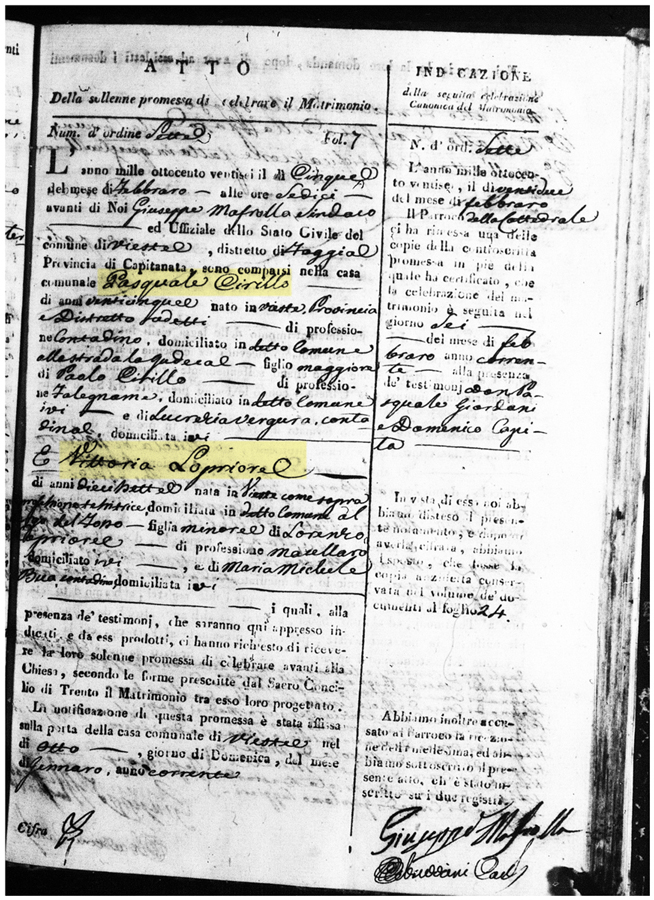 ATTO
Della sollenne promessa di celebrare il Matrimonio.
Num. d'ordine Sette Fol. 7
L'anno mille ottocento ventisei il dì Cinque
del mese di Febbraro — alle ore Sedici —
avanti di Noi Giuseppe Mafrolla Sindaco
ed Uffiziale dello Stato Civile del
comune di Vieste, distretto di Foggia
Provincia di Capitanata, sono comparsi nella casa
comunale Pasquale Cirillo
di anni venticinque nato in Vieste, Provincia
e Distretto sudetti — di professio-
ne Contadino, domiciliato in detto Comune
alla strada la Judeca — figlio maggiore
di Paolo Cirillo — di professio-
ne Falegname, domiciliato in detto Comune
ivi — e di Lucrezia Vergura, conta
dina, domiciliata ivi
E Vittoria Lopriore
di anni diecisette nata in Vieste come sopra
domiciliata in detto Comune al
— figlia minore di Lorenzo
Lopriore — di professione macellaro
domiciliato ivi —, e di Maria Michele
contadina domiciliata ivi
i quali, alla
presenza de' testimonj, che saranno quì appresso in-
dicati, e da essi prodotti, ci hanno richiesto di riceve-
re la loro solenne promessa di celebrare avanti alla
Chiesa, secondo le forme prescritte dal Sacro Conci-
lio di Trento il Matrimonio tra essi loro progettato.
La notificazione di questa promessa è stata affissa
sulla porta della casa comunale di Vieste nel
dì Otto —, giorno di Domenica, del mese
di Gennaro, anno corrente
Cifra
INDICAZIONE
della seguita celebrazione
Canonica del Matrimonio.
N. d'ord. Sette
L'anno mille ottocen-
to ventisei, il dì ventidue
del mese di febbraro
Il Parroco della Cattedrale
ci ha rimessa una delle
copie della controscritta
promessa in piè della
quale ha certificato, che
la celebrazione del ma-
trimonio è seguita nel
giorno Sei —
— del mese di feb
braro anno corren-
te — alla presenza
de' testimonj Don Pa-
squale Giordani
e Domenico Capi-
ta
In vista di essa noi ab-
biamo disteso il presen-
te notamento, e dopo di
averla cifrata, abbiamo
disposto, che fosse la
copia anzidetta conser-
vata nel volume de' do-
cumenti al foglio 24.
Abbiamo inoltre accu-
sato al Parroco la ricezio-
ne della medesima, ed ab-
biamo sottoscritto il pre-
sente atto, ch'è stato in-
scritto su i due registri.
Giuseppe Mafrolla